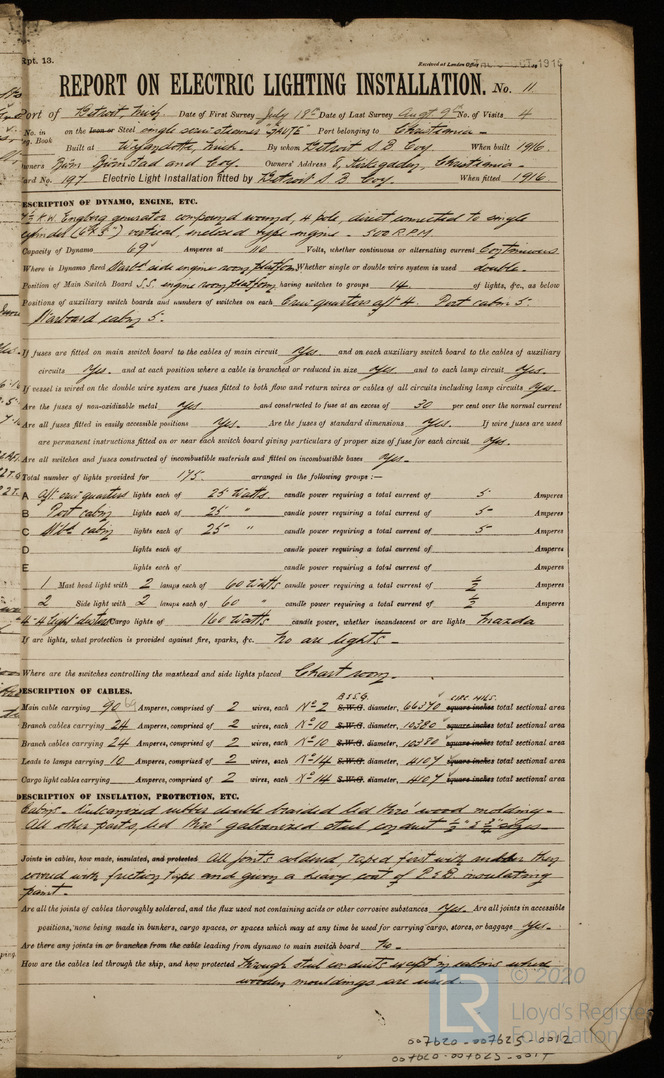 Rpt. 13.
Received at London Office
REPORT ON ELECTRIC LIGHTING INSTALLATION. No. 11.
Port of Detroit, Mich. Date of First Survey July 18th Date of Last Survey Augt. 9th No. of Visits 4
No. in Reg. Book on the Iron or Steel single screw steamer Port belonging to Christiania
Built at Wyandotte, Mich. By whom Detroit S B Coy When built 1916
Owners Biörn Biörnstad and Coy. Owners' Address Christiania
Yard No. 197 Electric Light Installation fitted by Detroit S B Coy. When fitted 1916
DESCRIPTION OF DYNAMO, ENGINE, ETC.
7½ K.W. Engberg generator compound wound, 4 pole, direct connected to single
cylinder (6 x 5") vertical, inclosed type engine - 500 R.P.M.
Capacity of Dynamo 69 Amperes at 110 Volts, whether continuous or alternating current Continuous
Where is Dynamo fixed Starbd side engine room platform Whether single or double wire system is used double.
Position of Main Switch Board S.S. engine room platform having switches to groups 14 of lights, &c., as below
Positions of auxiliary switch boards and numbers of switches on each Crew quarters aft 4. Port cabin 5.
Starboard cabin 5.
If fuses are fitted on main switch board to the cables of main circuit Yes. and on each auxiliary switch board to the cables of auxiliary
circuits Yes. and at each position where a cable is branched or reduced in size Yes. and to each lamp circuit Yes.
If vessel is wired on the double wire system are fuses fitted to both flow and return wires or cables of all circuits including lamp circuits Yes.
Are the fuses of non-oxidizable metal Yes. and constructed to fuse at an excess of 30 per cent over the normal current
Are all fuses fitted in easily accessible positions Yes. Are the fuses of standard dimensions Yes. If wire fuses are used
are permanent instructions fitted on or near each switch board giving particulars of proper size of fuse for each circuit Yes.
Are all switches and fuses constructed of incombustible materials and fitted on incombustible bases Yes.
Total number of lights provided for 175. arranged in the following groups :—
A Aft crew quarters lights each of 25 Watts. candle power requiring a total current of 5 Amperes
B Port cabin lights each of 25 " candle power requiring a total current of 5 Amperes
C Stbd. cabin lights each of 25 " candle power requiring a total current of 5 Amperes
D lights each of candle power requiring a total current of Amperes
E lights each of candle power requiring a total current of Amperes
1 Mast head light with 2 lamps each of 60 Watts candle power requiring a total current of ½ Amperes
2 Side light with 2 lamps each of 60 " candle power requiring a total current of ½ Amperes
4-4 light clusters Cargo lights of 160 Watts candle power, whether incandescent or arc lights Mazda
If arc lights, what protection is provided against fire, sparks, &c. No arc lights -
Where are the switches controlling the masthead and side lights placed Chart room.
DESCRIPTION OF CABLES.
B.S.S.G. CIRC. MILS.
Main cable carrying 90 69 Amperes, comprised of 2 wires, each No 2 S.W.G. diameter, 66370 square inches total sectional area
Branch cables carrying 24 Amperes, comprised of 2 wires, each No 10 S.W.G. diameter, 10380 square inches total sectional area
Branch cables carrying 24 Amperes, comprised of 2 wires, each No 10 S.W.G. diameter, 10380 square inches total sectional area
Leads to lamps carrying 10 Amperes, comprised of 2 wires, each No 14 S.W.G. diameter, 4107 square inches total sectional area
Cargo light cables carrying Amperes, comprised of 2 wires, each No 14 S.W.G. diameter, 4107 square inches total sectional area
DESCRIPTION OF INSULATION, PROTECTION, ETC.
Cabins - Vulcanized rubber double braided led thro' wood molding -
All other parts, led thro' galvanized steel conduit ½" & ¾"
Joints in cables, how made, insulated, and protected All joints soldered, taped first with rubber then
covered with friction tape and given a heavy coat of P.&B. insulating
paint -
Are all the joints of cables thoroughly soldered, and the flux used not containing acids or other corrosive substances Yes. Are all joints in accessible
positions, none being made in bunkers, cargo spaces, or spaces which may at any time be used for carrying cargo, stores, or baggage Yes.
Are there any joints in or branches from the cable leading from dynamo to main switch board No -
How are the cables led through the ship, and how protected Through steel conduits except in cabins where
wooden mouldings are used.
© 2020
LR
Lloyd's Register
Foundation
007920-007925-0012